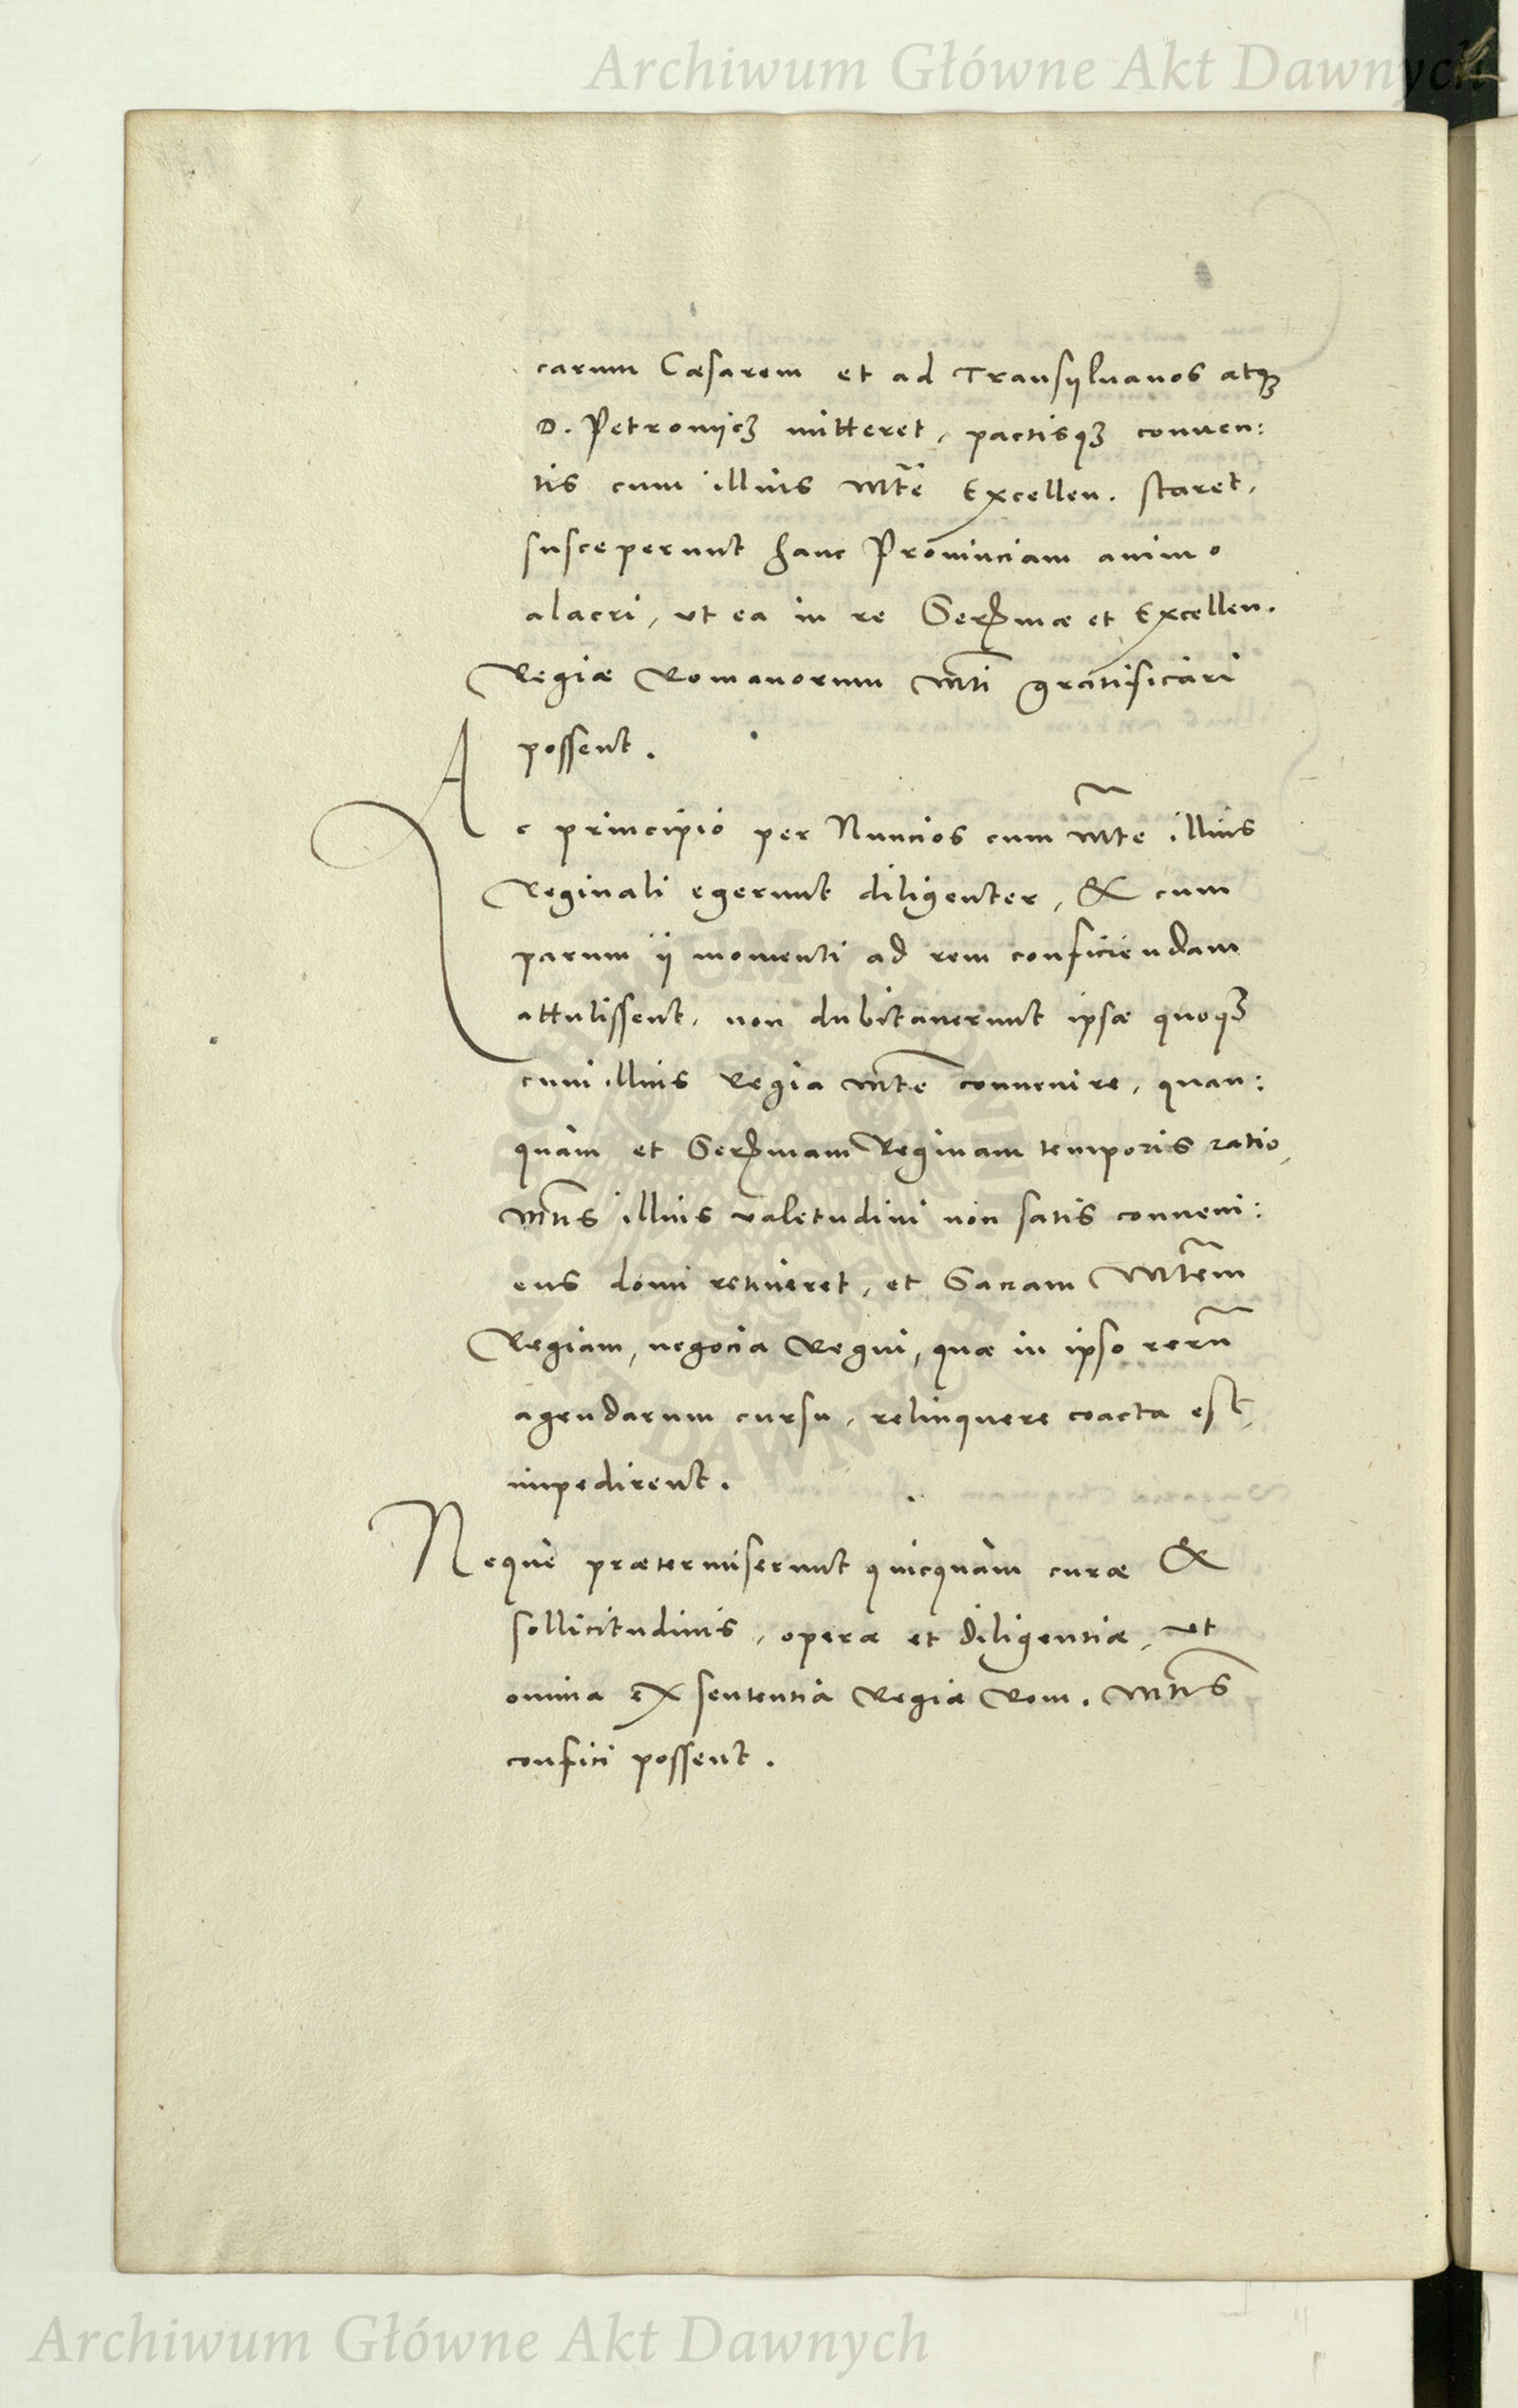 Archiwum Główne Akt Dawnych
carum Cæsarem et ad Transÿluanos atqȝ
D. Petrowicȝ mitteret, pactisqȝ conuen:
tis cum illius Mt̃e Excellen. staret,
susceperunt hanc Prouinciam animo
alacri, vt ea in re Serꝭmæ et Excellen.
Regiæ Romanorum Mt̃i gratificari
possent.
Ac principio per Nuncios cum Mt̃e illius
Reginali egerunt diligenter, & cum
parum ij momenti ad rem conficiendam
attulissent, non dubitauerunt ipsæ quoqȝ
cum illius Regia Mt̃e conuenire, quan:
quam et Serꝭmam Reginam temporis ratio,
Mt̃is illius valetudini non satis conueni:
ens domi retineret, et Sacram Mt̃em
Regiam, negocia Regni, quæ in ipso rerũ
agendarum cursu, relinquere coacta est,
impedirent.
Neque prætermiserunt quicquam curæ &
sollicitudinis, operæ et diligentiæ, vt
omnia ex sententia Regiæ Rom. Mt̃is
confici possent.
ARCHIWUM GŁÓWNE AKT DAWNYCH
Archiwum Główne Akt Dawnych